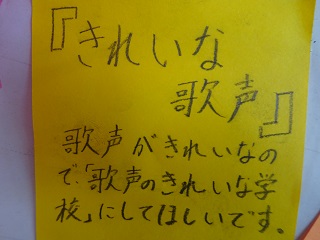 『きれいな
歌声』
歌声がきれいなの
で、「歌声のきれいな学
校」にしてほしいです。